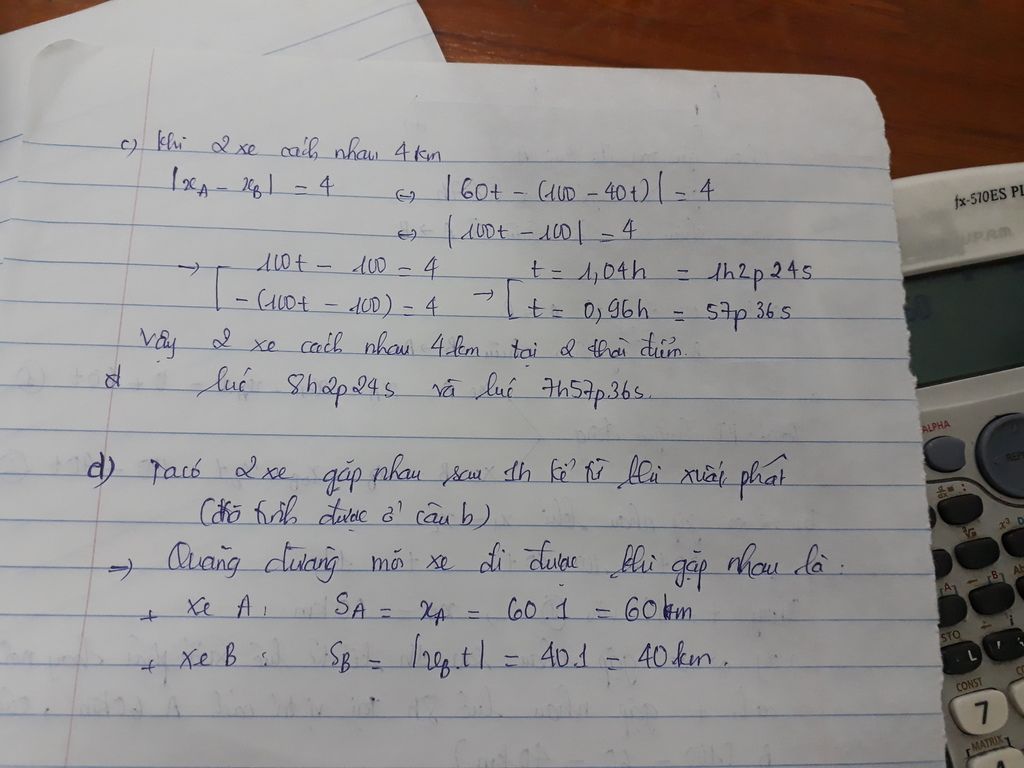 c) Khi 2 xe cách nhau 4km
|xA - xB| = 4 ⇔ |60t - (100 - 40t)| = 4
⇔ |100t - 100| = 4
→ [ 100t - 100 = 4 t = 1,04h = 1h2p24s
-(100t - 100) = 4 → [ t = 0,96h = 57p36s
Vậy 2 xe cách nhau 4km tại 2 thời điểm.
lúc 8h2p24s và lúc 7h57p36s.
d) Ta có 2 xe gặp nhau sau 1h kể từ khi xuất phát
(đã tính được ở câu b)
⇒ Quãng đường mỗi xe đi được khi gặp nhau là:
+ xe A: SA = xA = 60.1 = 60km
+ xe B: SB = |xB.t| = 40.1 = 40km.
fx-570ES PL
ALPHA
REP
STO
CONST
7
MATRIX